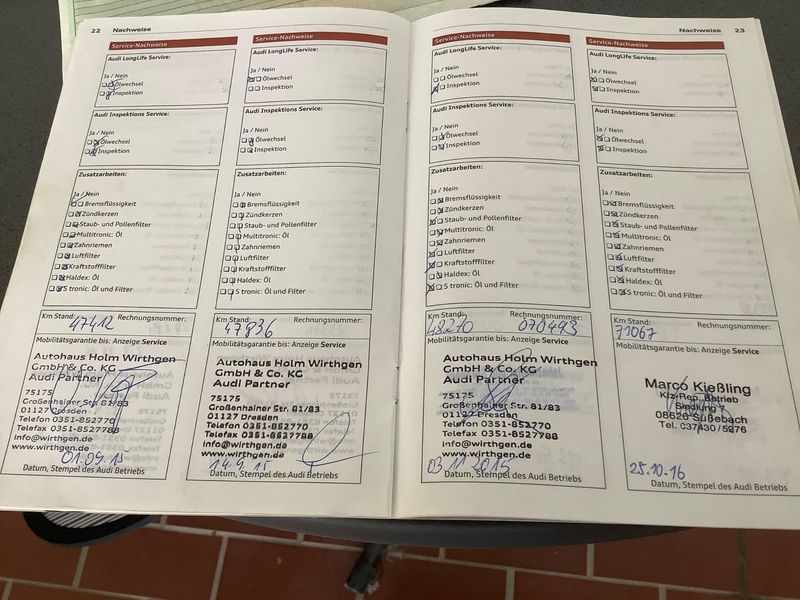 22 Nachweise
Service-Nachweise
Audi LongLife Service:
Ja / Nein
Ölwechsel
Inspektion
Audi Inspektions Service:
Ja / Nein
Ölwechsel
Inspektion
Zusatzarbeiten:
Ja / Nein
Bremsflüssigkeit
Zündkerzen
Staub- und Pollenfilter
Multitronic: Öl
Zahnriemen
Luftfilter
Kraftstofffilter
Haldex: Öl
S tronic: Öl und Filter
Km Stand: Rechnungsnummer:
47412
Mobilitätsgarantie bis: Anzeige Service
Autohaus Holm Wirthgen
GmbH & Co. KG
Audi Partner
75175
Großenhainer Str. 81/83
01127 Dresden
Telefon 0351-852770
Telefax 0351-8527788
info@wirthgen.de
www.wirthgen.de
Datum, Stempel des Audi Betriebs
Service-Nachweise
Audi LongLife Service:
Ja / Nein
Ölwechsel
Inspektion
Audi Inspektions Service:
Ja / Nein
Ölwechsel
Inspektion
Zusatzarbeiten:
Ja / Nein
Bremsflüssigkeit
Zündkerzen
Staub- und Pollenfilter
Multitronic: Öl
Zahnriemen
Luftfilter
Kraftstofffilter
Haldex: Öl
S tronic: Öl und Filter
Km Stand: Rechnungsnummer:
47936
Mobilitätsgarantie bis: Anzeige Service
Autohaus Holm Wirthgen
GmbH & Co. KG
Audi Partner
75175
Großenhainer Str. 81/83
01127 Dresden
Telefon 0351-852770
Telefax 0351-8527788
info@wirthgen.de
www.wirthgen.de
14.9.15
Datum, Stempel des Audi Betriebs
Nachweise 23
Service-Nachweise
Audi LongLife Service:
Ja / Nein
Ölwechsel
Inspektion
Audi Inspektions Service:
Ja / Nein
Ölwechsel
Inspektion
Zusatzarbeiten:
Ja / Nein
Bremsflüssigkeit
Zündkerzen
Staub- und Pollenfilter
Multitronic: Öl
Zahnriemen
Luftfilter
Kraftstofffilter
Haldex: Öl
S tronic: Öl und Filter
Km Stand: Rechnungsnummer:
48270 070493
Mobilitätsgarantie bis: Anzeige Service
Autohaus Holm Wirthgen
GmbH & Co. KG
Audi Partner
75175
Großenhainer Str. 81/83
01127 Dresden
Telefon 0351-852770
Telefax 0351-8527788
info@wirthgen.de
www.wirthgen.de
03.11.2015
Datum, Stempel des Audi Betriebs
Service-Nachweise
Audi LongLife Service:
Ja / Nein
Ölwechsel
Inspektion
Audi Inspektions Service:
Ja / Nein
Ölwechsel
Inspektion
Zusatzarbeiten:
Ja / Nein
Bremsflüssigkeit
Zündkerzen
Staub- und Pollenfilter
Multitronic: Öl
Zahnriemen
Luftfilter
Kraftstofffilter
Haldex: Öl
S tronic: Öl und Filter
Km Stand: Rechnungsnummer:
71067
Mobilitätsgarantie bis: Anzeige Service
Marco Kießling
Kfz-Rep. Betrieb
Siedlung 7
08626 Süßebach
Tel. 037430/5976
25.10.16
Datum, Stempel des Audi Betriebs